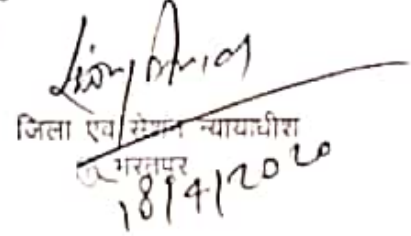 जिला एवं सेशन न्यायाधीश
भरतपुर
18/4/2020